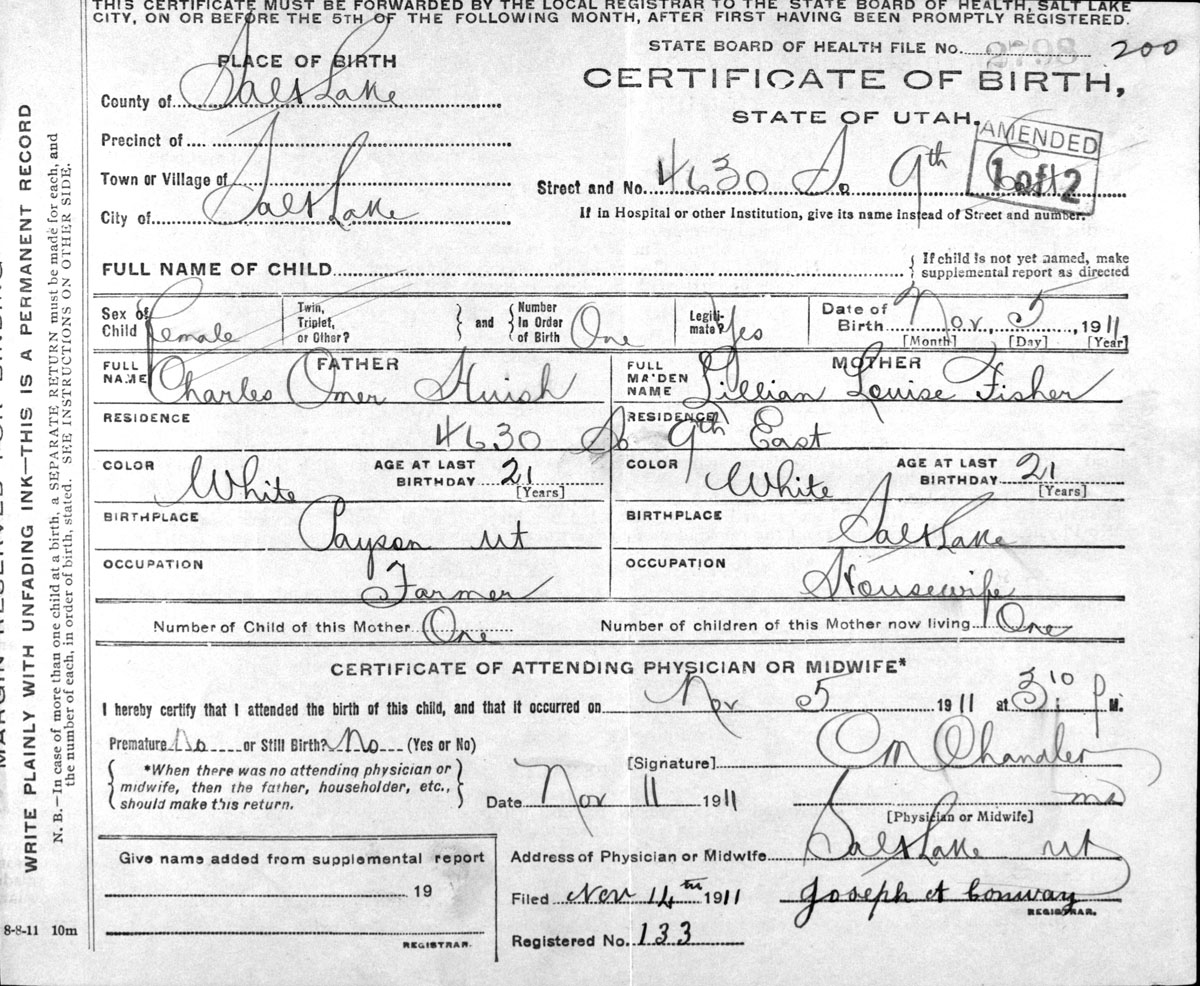 THIS CERTIFICATE MUST BE FORWARDED BY THE LOCAL REGISTRAR TO THE STATE BOARD OF HEALTH, SALT LAKE
CITY, ON OR BEFORE THE 5TH OF THE FOLLOWING MONTH, AFTER FIRST HAVING BEEN PROMPTLY REGISTERED.
STATE BOARD OF HEALTH FILE No. 2798 200
PLACE OF BIRTH
CERTIFICATE OF BIRTH,
County of Salt Lake
STATE OF UTAH.
AMENDED
1 of 2
Precinct of
Town or Village of
Street and No. 4630 So 9th East
City of Salt Lake
If in Hospital or other Institution, give its name instead of Street and number.
FULL NAME OF CHILD
{ If child is not yet named, make
supplemental report as directed
Sex of Child Female
Twin, Triplet, or Other?
and
Number In Order of Birth One
Legiti-mate? Yes
Date of Birth Nov, 5, 1911
[Month] [Day] [Year]
FATHER
MOTHER
FULL NAME Charles Omer Huish
FULL MAIDEN NAME Lillian Louise Fisher
RESIDENCE
RESIDENCE
4630 So 9th East
COLOR White AGE AT LAST BIRTHDAY 21 [Years]
COLOR White AGE AT LAST BIRTHDAY 21 [Years]
BIRTHPLACE Payson Ut
BIRTHPLACE Salt Lake
OCCUPATION Farmer
OCCUPATION Housewife
Number of Child of this Mother One
Number of children of this Mother now living One
CERTIFICATE OF ATTENDING PHYSICIAN OR MIDWIFE*
I hereby certify that I attended the birth of this child, and that it occurred on Nov 5 1911 at 3:10 P. M.
Premature No or Still Birth? No (Yes or No)
[Signature] C M Chandler
*When there was no attending physician or
midwife, then the father, householder, etc.,
should make this return.
Date Nov 11 1911
MD
[Physician or Midwife]
Give name added from supplemental report
Address of Physician or Midwife Salt Lake Ut
19
Filed Nov 14th 1911 Joseph A Conway
REGISTRAR.
Registered No. 133
REGISTRAR.
8-8-11 10m
MARGIN RESERVED FOR BINDING
WRITE PLAINLY WITH UNFADING INK—THIS IS A PERMANENT RECORD
N. B.—In case of more than one child at a birth, a SEPARATE RETURN must be made for each, and
the number of each, in order of birth, stated. SEE INSTRUCTIONS ON OTHER SIDE.